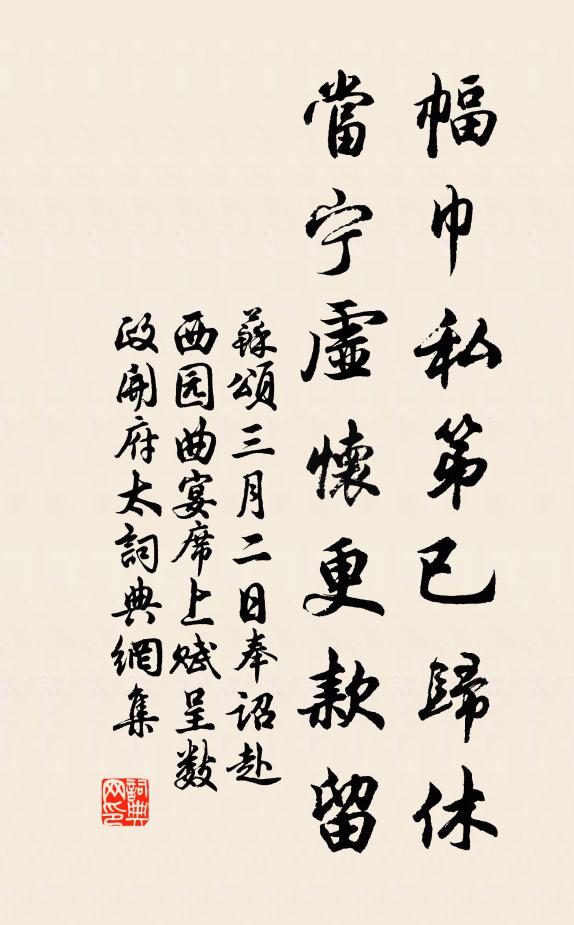 幅巾私第已歸休
當宁虛懷更款留
蘇頌三月二日奉詔赴
西园曲宴席上賦呈致
政開府太詞典網集
詞典网印